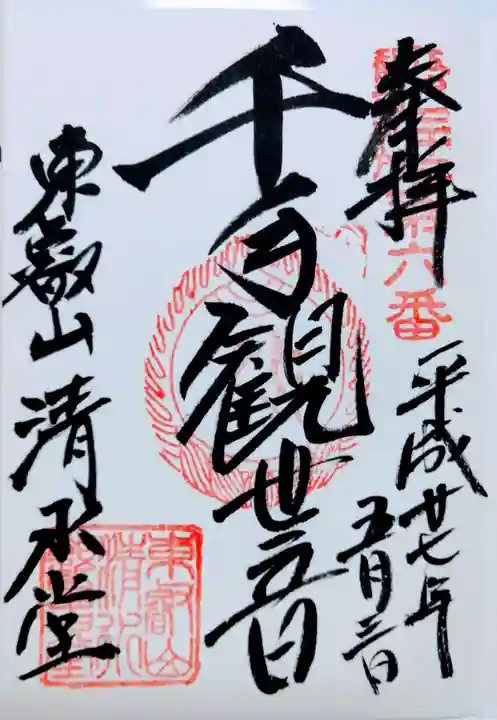 奉拝
六番
平成廿七年
五月三日
千手觀世音
東叡山清水堂
東叡山
清水